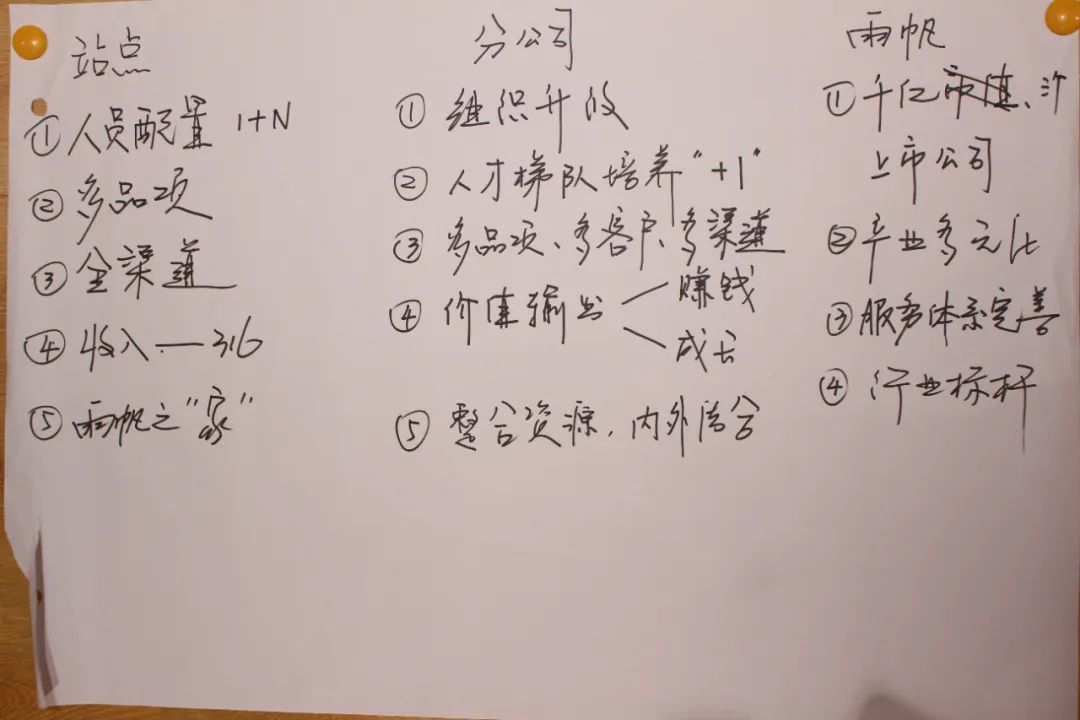 站点
①人员配置 1+N
②多品项
③全渠道
④收入——316
⑤雨帆之"家"
分公司
①组织升级
②人才梯队培养"+1"
③多品项、多客户、多渠道
④价值输出
赚钱
成长
⑤整合资源,内外结合
雨帆
①千亿市值、
上市公司
②产业多元化
③服务体系完善
④行业标杆